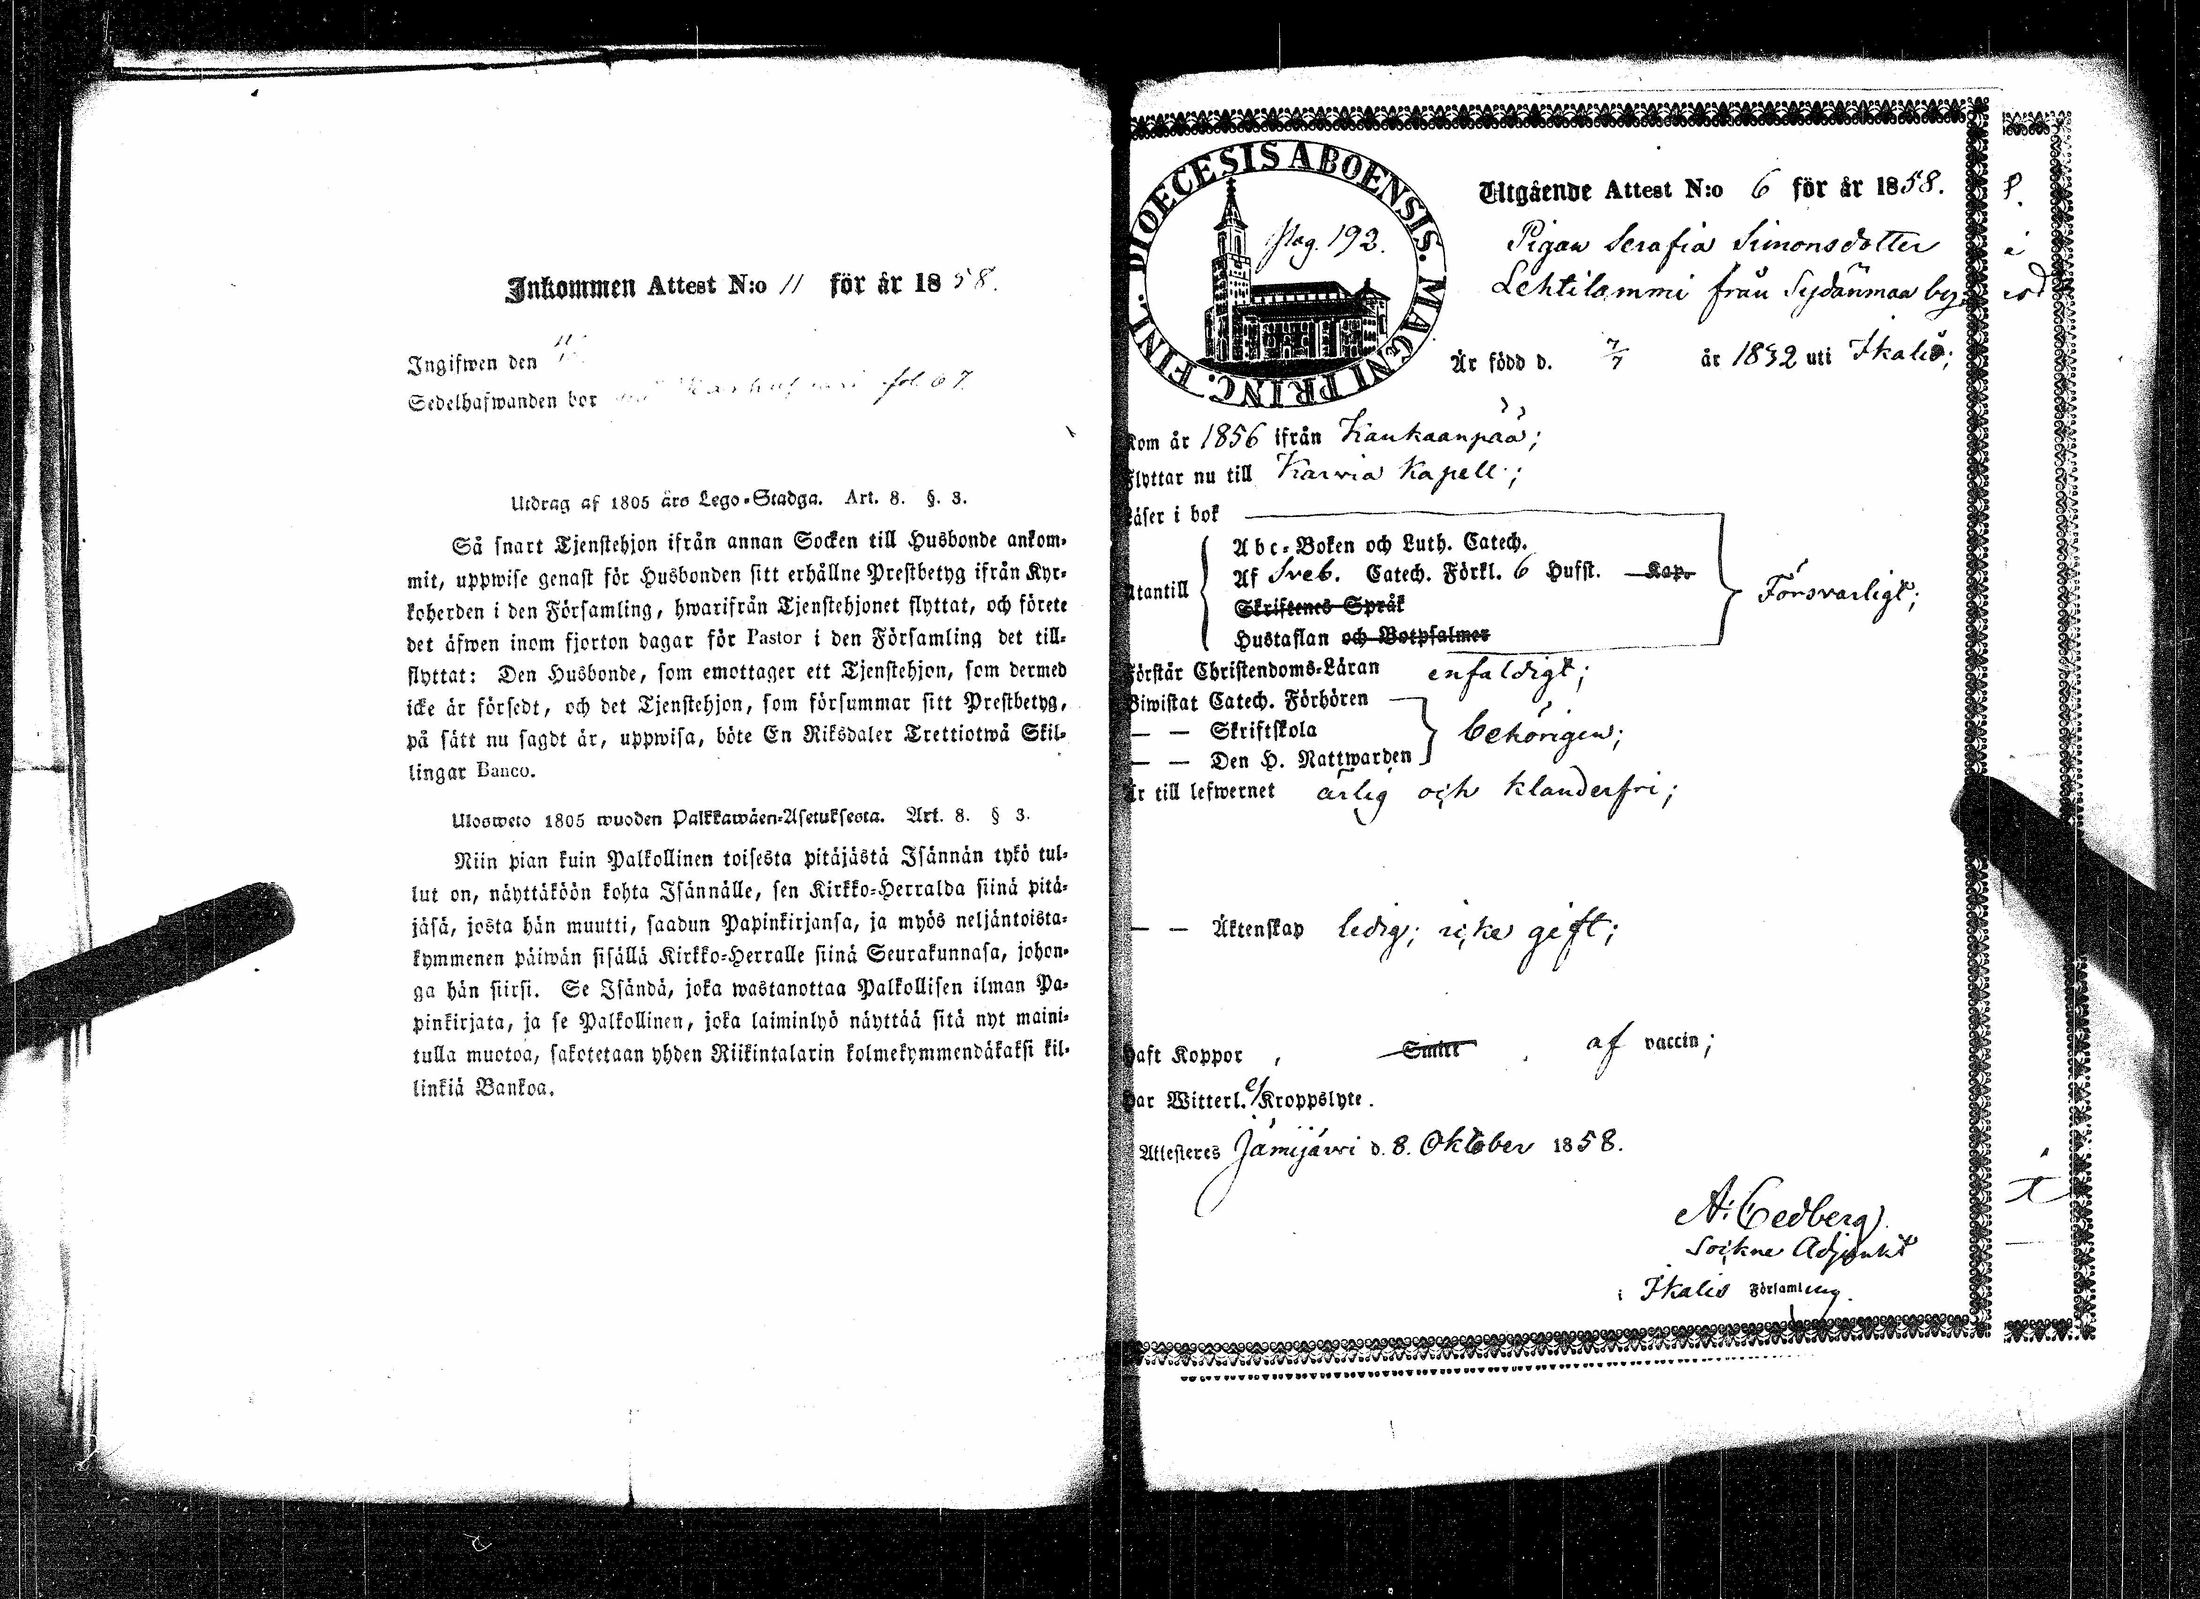 Inkommen Attest N:o 11 för år 1858.
Ingifwen den
Sedelhafwanden bor fol. 67.
Utdrag af 1805 års Lego-Stadga. Art. 8. §. 3.
Så snart Tjenstehjon ifrån annan Socken till Husbonde ankom-
mit, uppwise genast för Husbonden sitt erhållne Prestbetyg ifrån Kyr-
koherden i den Församling, hwarifrån Tjenstehjonet flyttat, och förete
det äfwen inom fjorton dagar för Pastor i den Församling det till-
flyttat: Den Husbonde, som emottager ett Tjenstehjon, som dermed
icke är försedt, och det Tjenstehjon, som försummar sitt Prestbetyg,
på sätt nu sagdt är, uppwisa, böte En Riksdaler Trettiotwå Skil-
lingar Banco.
Ulosweto 1805 wuoden Palkkawäen-Asetuksesta. Art. 8. § 3.
Niin pian kuin Palkollinen toisesta pitäjästä Isännän tykö tul-
lut on, näyttäköön kohta Isännälle, sen Kirkko-Herralda siinä pitä-
jäsä, josta hän muutti, saadun Papinkirjansa, ja myös neljäntoista-
kymmenen päiwän sisällä Kirkko-Herralle siinä Seurakunnasa, johon-
ga hän siirsi. Se Isändä, joka wastanottaa Palkollisen ilman Pa-
pinkirjata, ja se Palkollinen, joka laiminlyö näyttää sitä nyt maini-
tulla muotoa, sakotetaan yhden Riikintalarin kolmekymmendäkaksi kil-
linkiä Bankoa.
DIOECESIS ABOENSIS. MAGNI PRINC. FINL.
Pag. 192.
Utgående Attest N:o 6 för år 1858.
Pigan Serafia Simonsdotter
Lehtilammi från Sydänmaa by,
Är född d. 7/7 år 1832 uti Ikalis;
Kom år 1856 ifrån Kankaanpää;
Flyttar nu till Karvia Kapell;
Läser i bok
Abc-Boken och Luth. Catech.
Utantill Af Sveb. Catech. Förkl. 6 Hufst. Kap. Försvarligt;
Skriftenes Språk
Hustaflan och Botpsalmer
Förstår Christendoms-Läran enfaldigt;
Biwistat Catech. Förhören
— — Skriftskola behörigen;
— — Den H. Nattwarden
Är till lefwernet ärlig och klanderfri;
— — Äktenskap ledig; icke gift;
Haft Koppor, af vaccin;
Har Witterl. ej Kroppslyte.
Attesteres Jämijärvi d. 8. Oktober 1858.
A. Cedberg.
Sockne Adjunkt
i Ikalis Församling.